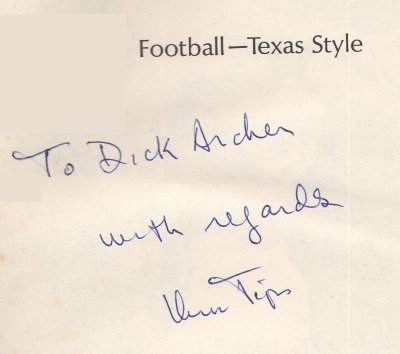 Football—Texas Style
To Dick Archer
with regards
Kern Tips